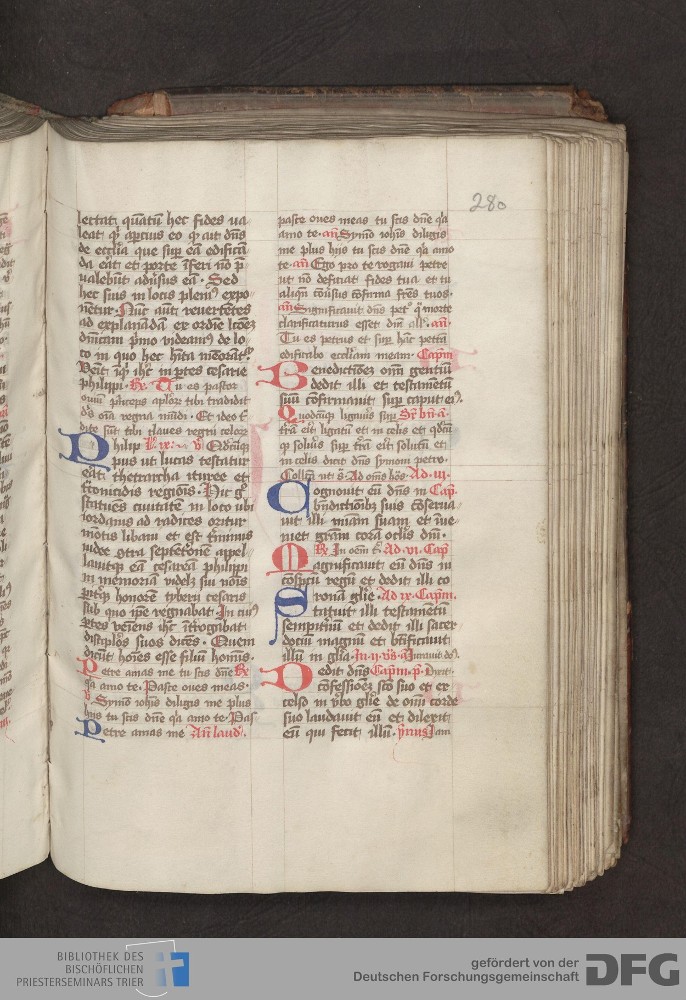 280
lectat quātū hec fides ua
leat qr̄ apcius eo qr ait dn̄s
de ecclīa que sup eā edificā
da eāt et porte īferi nō p̄
ualebūt adūsus eā. Sed
hec sius in locis plenis expo
nētur. Nūc aūt reuertētes
ad explanādā ex ordīe lcōeȝ
dn̄icam pmo videam de lo
co in quo hec hīta mēorātr.
Venit īqr ihc in ptes cesarie
philippi. Rx Tu es pastor
ouiū princeps aplor̄ tibi tradidit
ds oīa regna mūdi. Et ideo t̄
dite sūt tibi claues regni celor̄
Philip
pus ut lucas testatur
eāt thetrarcha ituree et
t̄conitidis regiōis. Hic gͦ
statues ciuitatē in loco ubi
iordanis ad radices oritur
mōtis libani et est t̄minus
iudee ɔtra septētrōnē appel
lauitqe eā cesareā philippi
in memoriā videlȝ sui nōis
pitqȝ honorē tyberij cesaris
sub quo ipe regnabat. In cui
ptes veīens ihc īt̄rogabat
discip̄los suos dicēs. Quem
dicūt hoīes esse filiū hoīnis.
Petre amas me tu scis dn̄e Rx
qa amo te. Pasce oues meas.
v̄ Symō iohīs diligis me plus
hijs tu scis dn̄e qa amo te. Pas
Petre amas me Añ laud.
pasce oues meas tu scis dn̄e qa
amo te. añ Symō iohīs diligis
me plus hijs tu scis dn̄e qa amo
te. añ Ego pro te rogaui petre
ut nō deficiat fides tua et tu
aliqn̄ cōuisus cōfirma frēs tuos.
añ Significauit dn̄s pet° q morte
clarificaturus esset dm̄ allͣ. añ.
Tu es petrus et sup hāc petrā
edificabo eccliam meam. Capm
Benedictiōeȝ oīm gentiū
dedit illi et testamētū
suū cōfirmauit sup caput eiꝰ.
Quodcūqe ligauis sup
t̄rā eīt ligatū et in celis et qdcūqȝ
qe soluis sup t̄rā eīt solutū et
in celis dicit dn̄s symoni petro.
Coll̄ca ut s. Ad om̄s hōs. Ad .iii.
Cognouit eū dn̄s in Cap
bn̄dictiōibȝ suis cōserua
uit illi m̄iam suam et īue
net gr̄am corā oclis dn̄i.
Rx In oēm t̄. Ad .vi. Cap
Magnificauit eū dn̄s in
cōspc̄u regū et dedit illi co
ronā glīe. Ad ix. Capm.
Statuit illi testamētū
sempitnū et dedit illi sacer
dociū magnū et btīficauit
illū in glīa. In .ij. vs. a Iurauit do.
Dedit dn̄s Capm. p. Dixit.
cōfessiōeȝ scō suo et ex
celso in vbo glīe de om̄i corde
suo laudauit eū et dilexit
eū qui fecit illū. ymus Iam
BIBLIOTHEK DES
BISCHÖFLICHEN
PRIESTERSEMINARS TRIER
gefördert von der
Deutschen Forschungsgemeinschaft
DFG